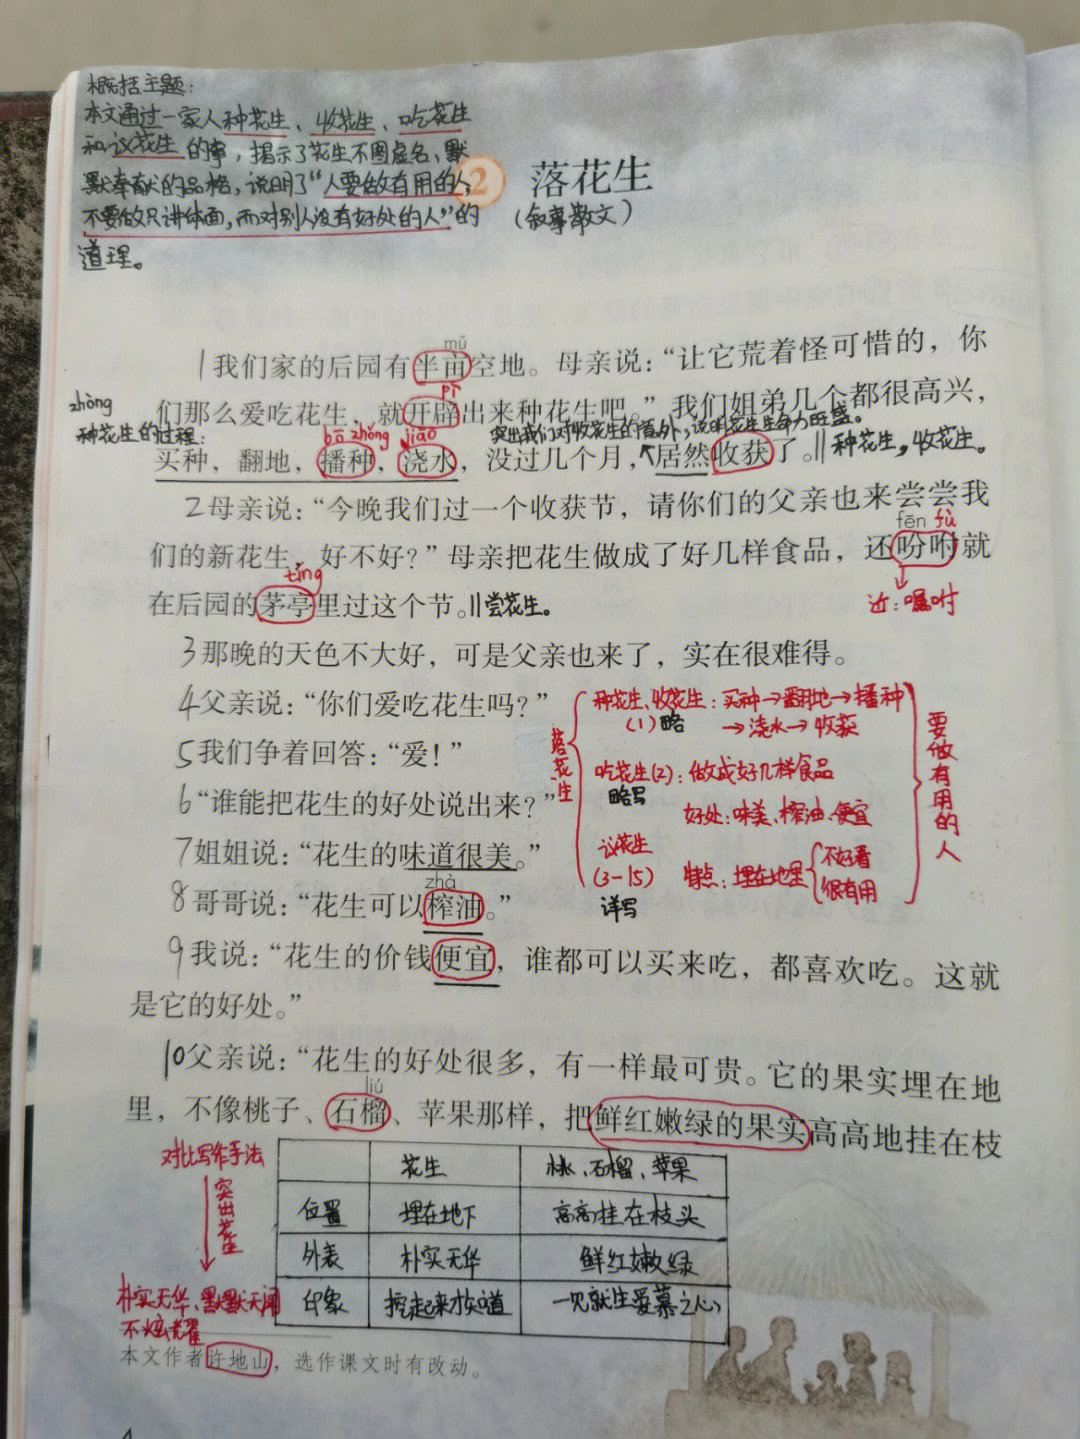 概括主题:
本文通过一家人种花生、收花生、吃花生
和议花生的事，揭示了花生不图虚名、默
默奉献的品格，说明了“人要做有用的人，
不要做只讲体面，而对别人没有好处的人”的
道理。
2 落花生
(叙事散文)
mǔ
1我们家的后园有半亩空地。母亲说：“让它荒着怪可惜的，你
zhòng
pì
们那么爱吃花生，就开辟出来种花生吧。”我们姐弟几个都很高兴，
种花生的过程:
bō zhǒng jiāo
突出我们对收花生的意外，说明花生生命力旺盛。
买种，翻地，播种，浇水，没过几个月，居然收获了。‖种花生，收花生。
2母亲说：“今晚我们过一个收获节，请你们的父亲也来尝尝我
fēn fù
们的新花生，好不好？”母亲把花生做成了好几样食品，还吩咐就
tíng
在后园的茅亭里过这个节。‖尝花生。
近:嘱咐
3那晚的天色不大好，可是父亲也来了，实在很难得。
4父亲说：“你们爱吃花生吗？”
5我们争着回答：“爱！”
6“谁能把花生的好处说出来？”
7姐姐说：“花生的味道很美。”
zhà
8哥哥说：“花生可以榨油。”
落花生
种花生、收花生:买种→翻地→播种
(1)略
→浇水→收获
吃花生(2):做成好几样食品
略写
好处:味美、榨油、便宜
议花生
(3-15)
特点:埋在地里
不好看
很有用
详写
要做有用的人
9我说：“花生的价钱便宜，谁都可以买来吃，都喜欢吃。这就
是它的好处。”
10父亲说：“花生的好处很多，有一样最可贵。它的果实埋在地
liú
里，不像桃子、石榴、苹果那样，把鲜红嫩绿的果实高高地挂在枝
对比写作手法
突出花生
朴实无华、默默无闻
不炫耀
花生 桃、石榴、苹果
位置 埋在地下 高高挂在枝头
外表 朴实无华 鲜红嫩绿
印象 挖起来才知道 一见就生爱慕之心
本文作者许地山，选作课文时有改动。